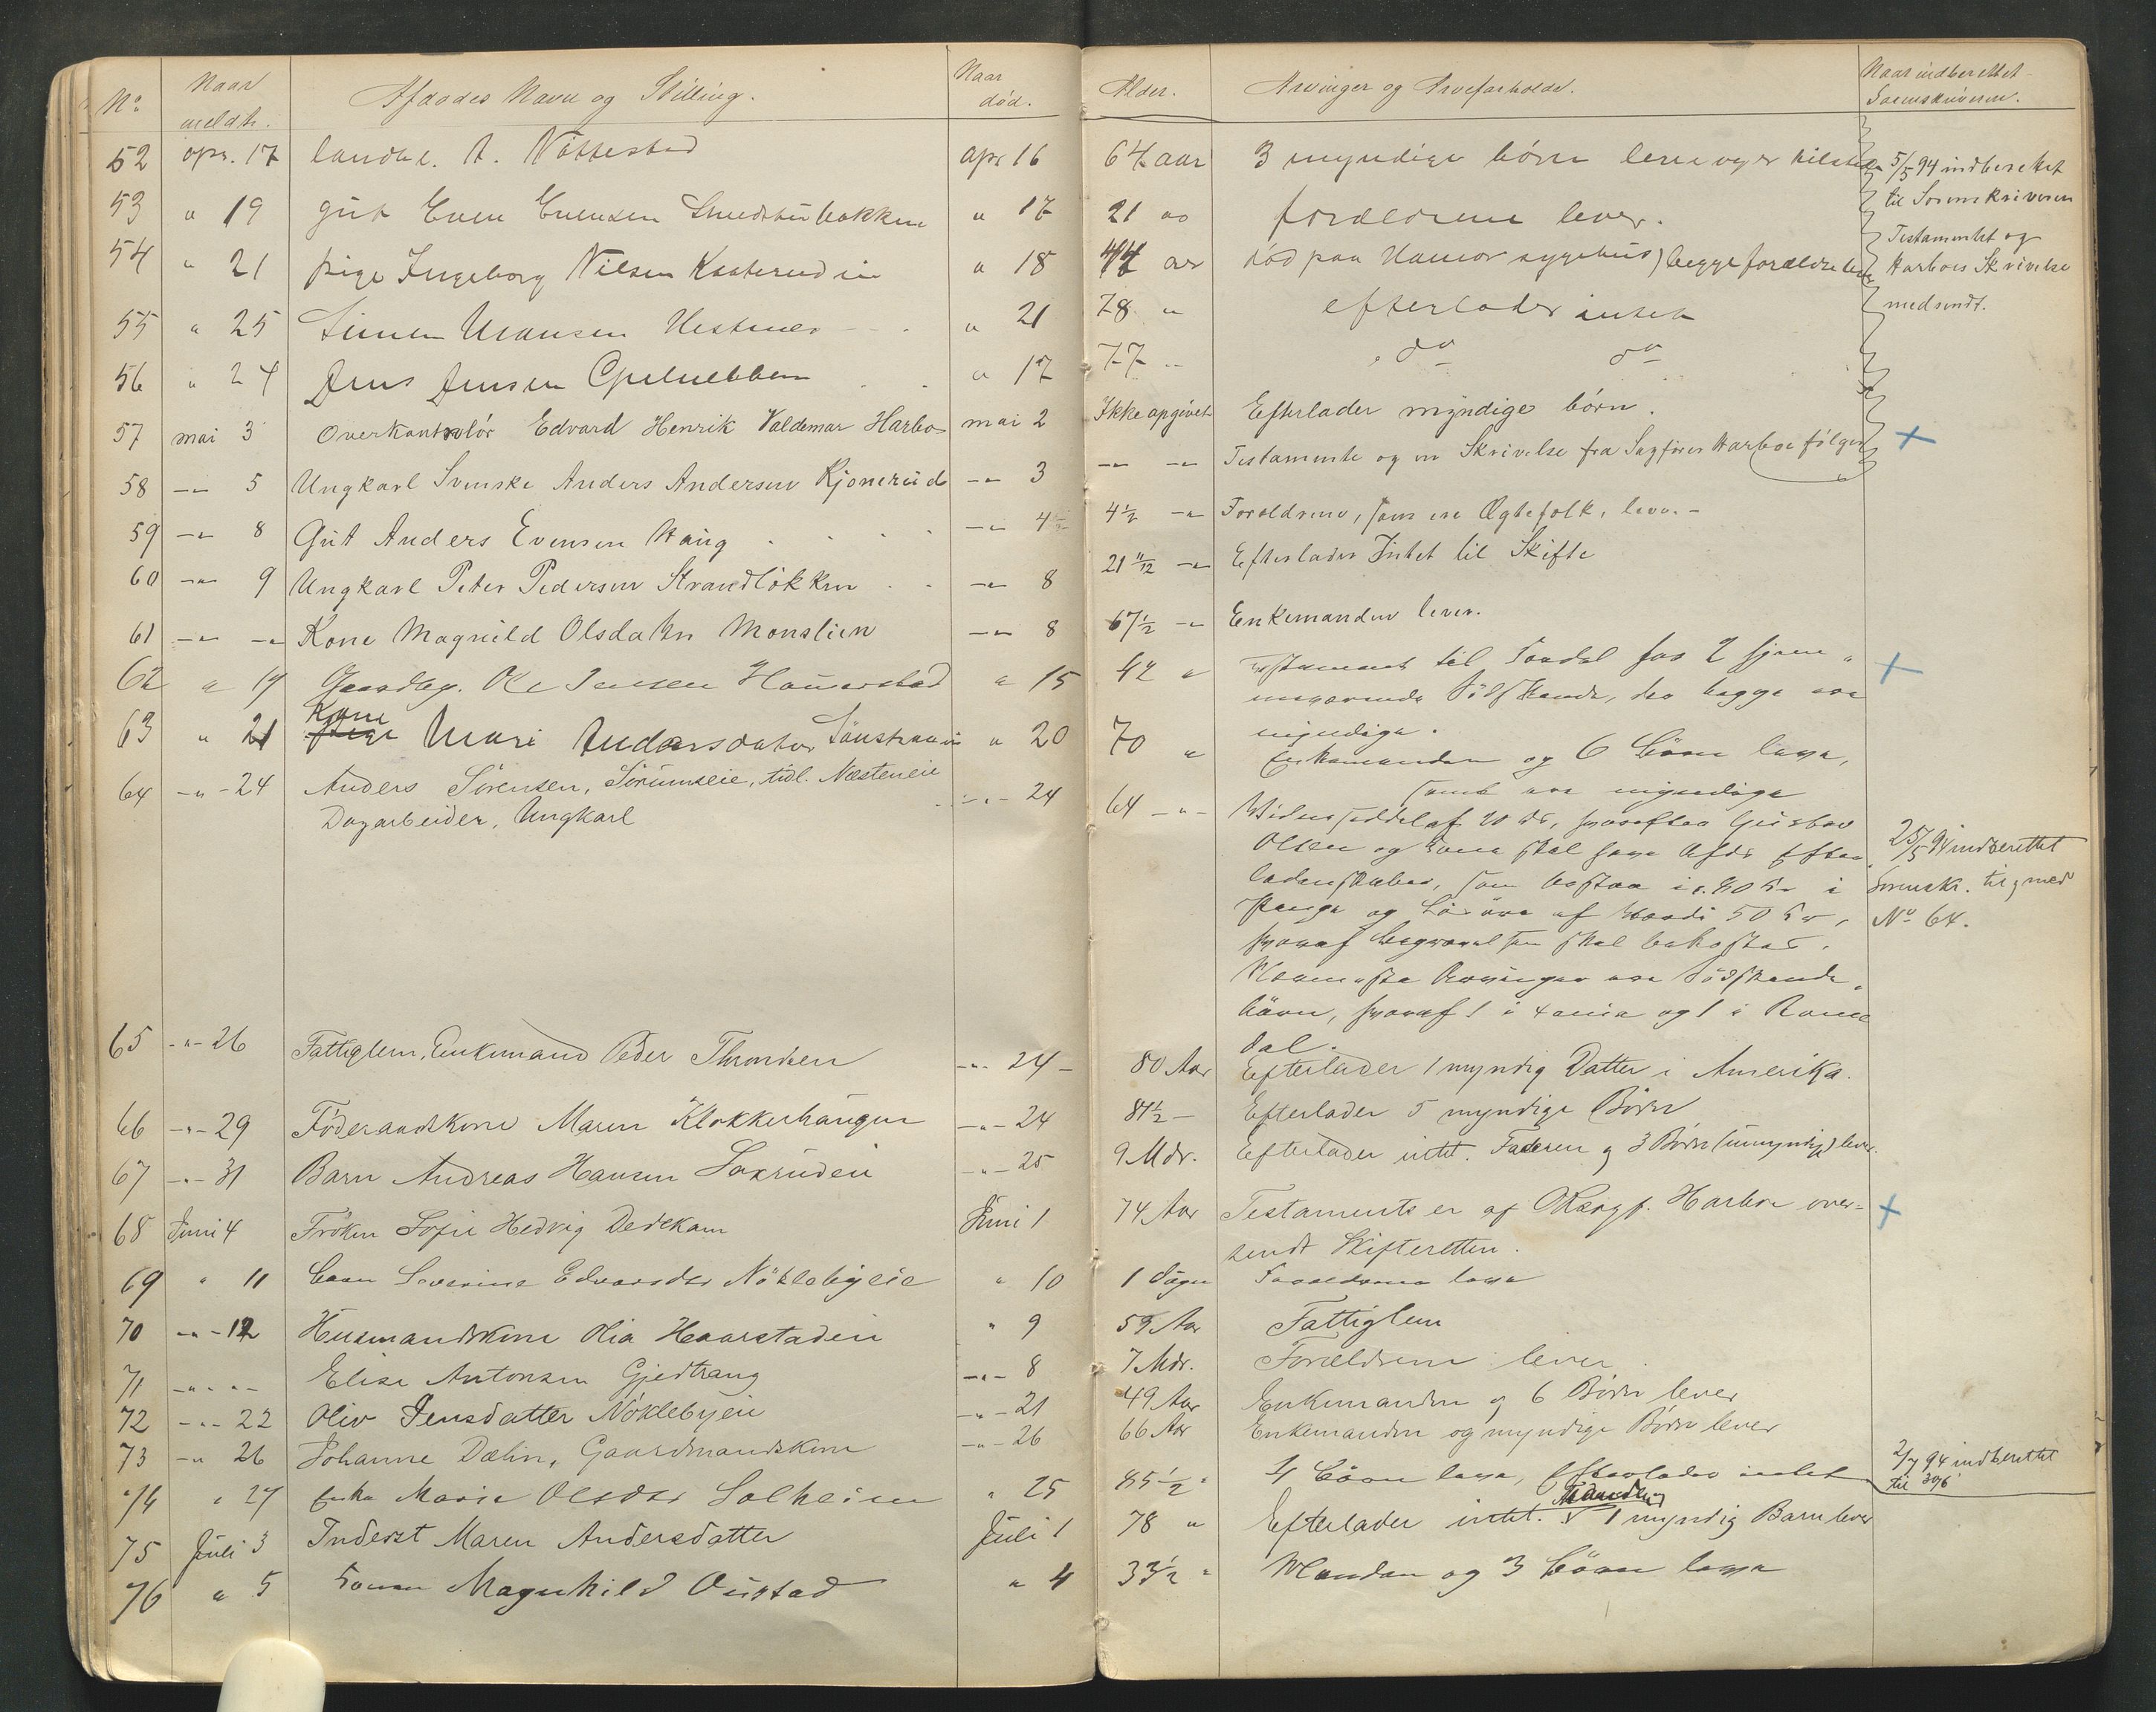 No
Naar
meldt.
Afdødes Navn og Stilling.
Naar
død.
52 apr. 17 landh. A. Nøttestad apr 16
53 " 19 gut Even Evensen Smedstubakken " 17
54 " 21 pige Ingeborg Nilsen Kaaterudin " 18
55 " 25 Simen Hansen Hestnes " 21
56 " 24 Jens Jensen " 17
57 mai 3 Overkontrolør Edvard Henrik Valdemar Harboe mai 2
58 -"- 5 Ungkarl Svenske Anders Andersen Kjonerud -"- 3
59 -"- 8 Gut Anders Evensen Haug -"- 4
60 -"- 9 Ungkarl Peter Pedersen Strandløkken -"- 8
61 -"- -"- Kone Magnild Olsdatter Monslien -"- 8
62 " 19 Gaardbr. Ole Jensen Hommerstad " 15
Kone
63 " 21 pige Mari Andersdatter " 20
64 -"- 24 Anders Sørensen, Sørumseie, tidl. Næsteneie -"- 24
Dagarbeider, Ungkarl
65 -"- 26 Fattiglem, Enkemand Peder Thronsen -"- 24 -
66 -"- 29 Føderaadskone Maren Klokkerhaugen -"- 24
67 -"- 31 Barn Andreas Hansen Saxrudei -"- 25
68 Juni 4 Frøken Sofie Hedvig Dedekam Juni 1
69 " 11 Barn Severine Edvardsdtr Nøklebyeie " 10
70 -"- 12 Husmandskone Olia Haarstadeie " 9
71 -"- -"- Elise Antonsen Gjestvang -"- 8
72 -"- 22 Oliv Jensdatter Nøklebyeie -"- 21
73 -"- 26 Johanne Dælin, Gaardmandskone -"- 26
74 " 27 Enke Marie Olsdtr Solheim " 25
75 Juli 3 Inderst Maren Andersdatter Juli 1
76 " 5 Konen Magnhild Oustad " 4
Alder.
Arvinger og Arveforholde.
Naar indberettet
Sorenskriveren.
64 aar 3 myndige børn lever
5/5 94 indberettet
til Sorenskriveren
21 aa forældrene lever.
Testamentet og
44 aar død paa Hamar sygehus) begge forældre lever
Harboes Skrivelse
78 " efterlader intet
medsendt.
77 " do do
Ikke opgivet Efterlader myndige børn.
Testamente og en Skrivelse fra Sagfører Harboe følger +
4½ -"- Forældrene, som ere Ægtefolk, lever.-
21 11/12 -"- Efterlader Intet til Skifte
67½ -"- Enkemanden lever.
42 " Testament til Fordel for 2 hjem- +
meværende Sødskende, der begge ere
myndige.
70 " Enkemanden og 6 Børn leve,
samt ere myndige
64 -"- Vidneseddel af 20 ds, hvorefter Gustav
Olsen og Kone skal have Afds Efter-
ladenskaber, som bestaa i c. 40 Kr i
Penge og Løsøre af Værdi 50 Kr,
hvoraf Begravelsen skal bekostes.
Nærmeste Arvinger ere Sødskende-
børn, hvoraf 1 i og 1 i Roms
dal.
25/5 94 indberettet
Sorenskr. til og med
No 64.
80 Aar Efterlader 1 myndig Datter i Amerika.
81½ - Efterlader 5 myndige Børn
9 Mdr. Efterlader intet. Faderen og 3 Børn (umyndige) lever.
74 Aar Testamentet er af Harboe over- +
sendt Skifteretten.
1 Døgn Forældrene leve
59 Aar Fattiglem
7 Mdr. Forældrene lever
49 Aar Enkemanden og 6 Børn lever
66 Aar Enkemanden og myndige Børn lever
85½ " 4 Børn leve, Efterlader intet
2/7 94 indberettet
til 30/6
Manden
78 " Efterlader intet. 1 myndig Barn lever
33½ " Manden og 3 Børn leve